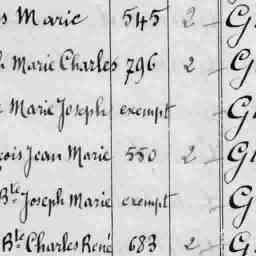 s Marie 545 2 G
h Marie Charles 796 2 G
Marie Joseph exempt G
çois Jean Marie 550 2 G
Bte Joseph Marie exempt G
Bte Charles René 683 2 G